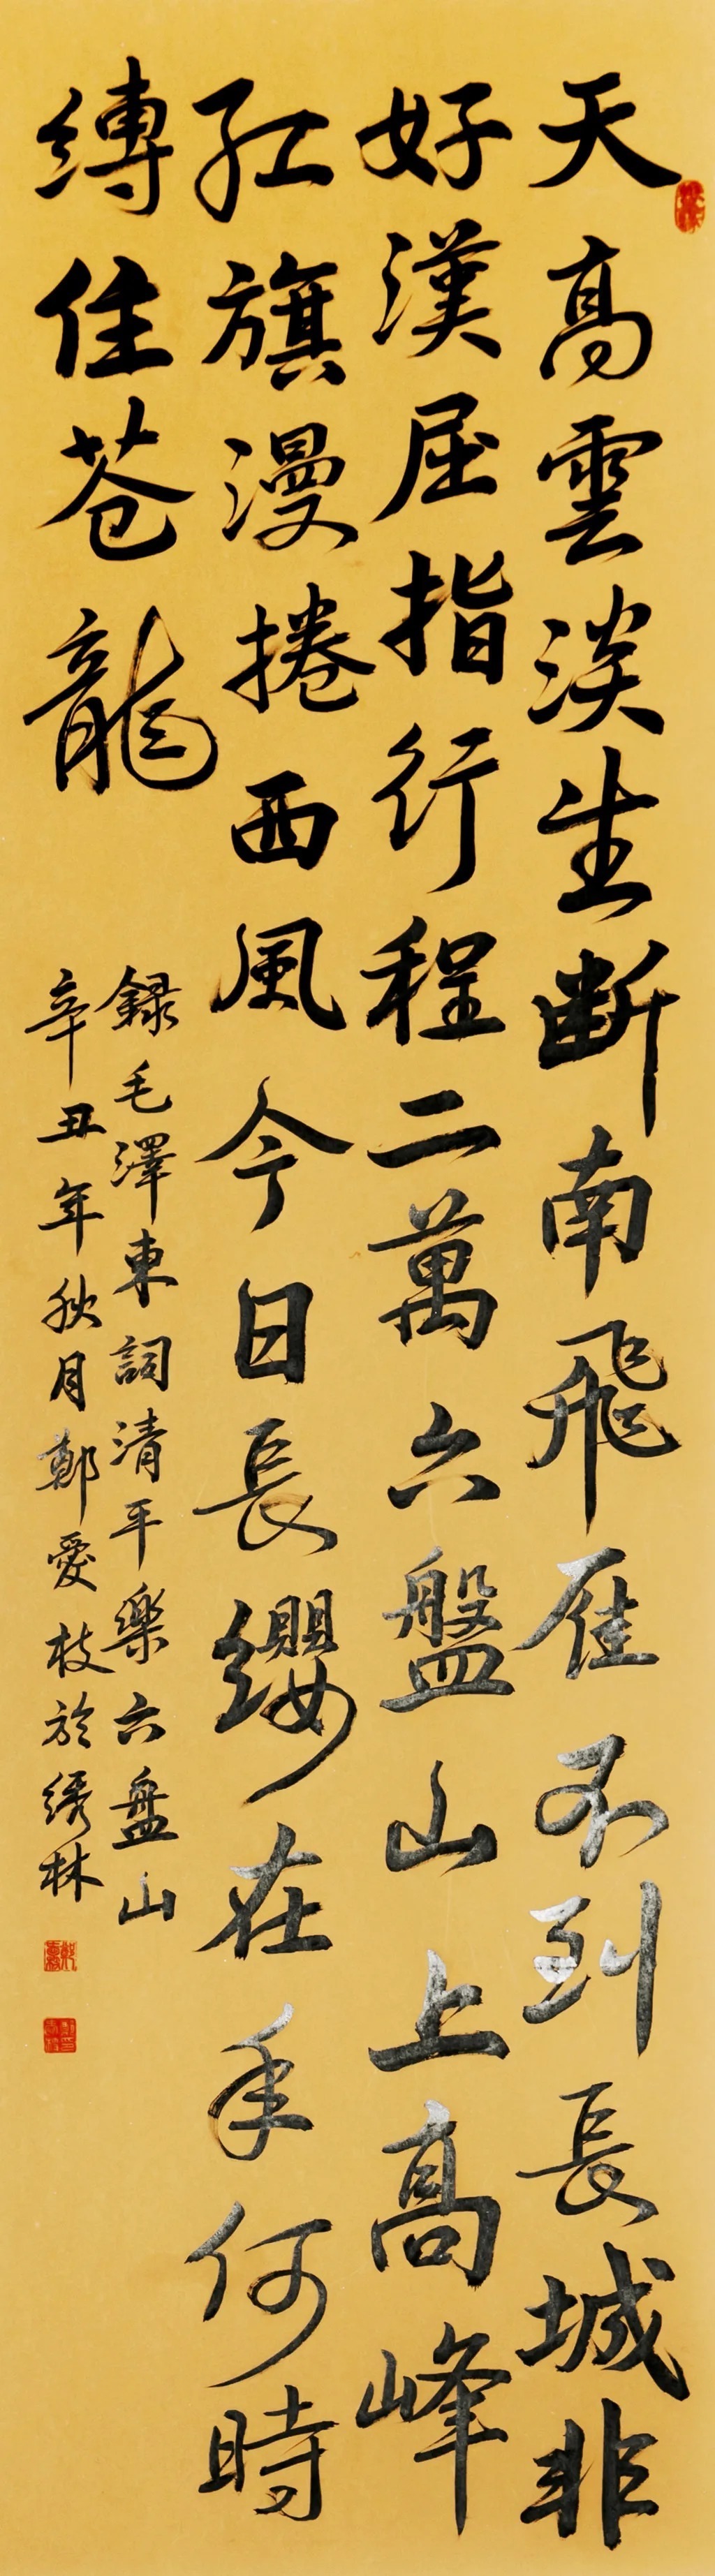 天高雲淡生断南飛雁不到長城非
好漢屈指行程二萬六盤山上高峰
紅旗漫捲西風今日長纓在手何時
縛住苍龍
録毛澤東詞清平樂六盤山
辛丑年秋月鄭愛枝於綉林